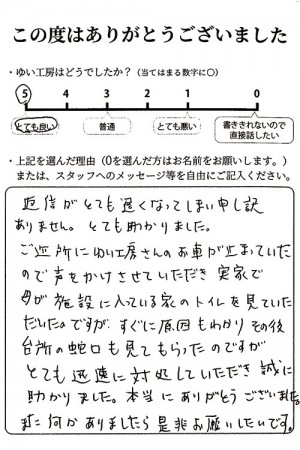 この度はありがとうございました
・ゆい工房はどうでしたか？（当てはまる数字に○）
5 4 3 2 1 0
とても良い 普通 とても悪い 書ききれないので直接話したい
・上記を選んだ理由（0を選んだ方はお名前をお願いします。）
または、スタッフへのメッセージ等を自由にご記入ください。
返信がとても遅くなってしまい申し訳
ありません。とても助かりました。
ご近所にゆい工房さんのお車が止まっていた
ので声をかけさせていただき実家で
母が施設に入っている家のトイレを見ていた
だいたのですが、すぐに原因もわかりその後
台所の蛇口も見てもらったのですが
とても迅速に対処していただき誠に
助かりました。本当にありがとうございました。
また何かありましたら是非お願いしたいです。